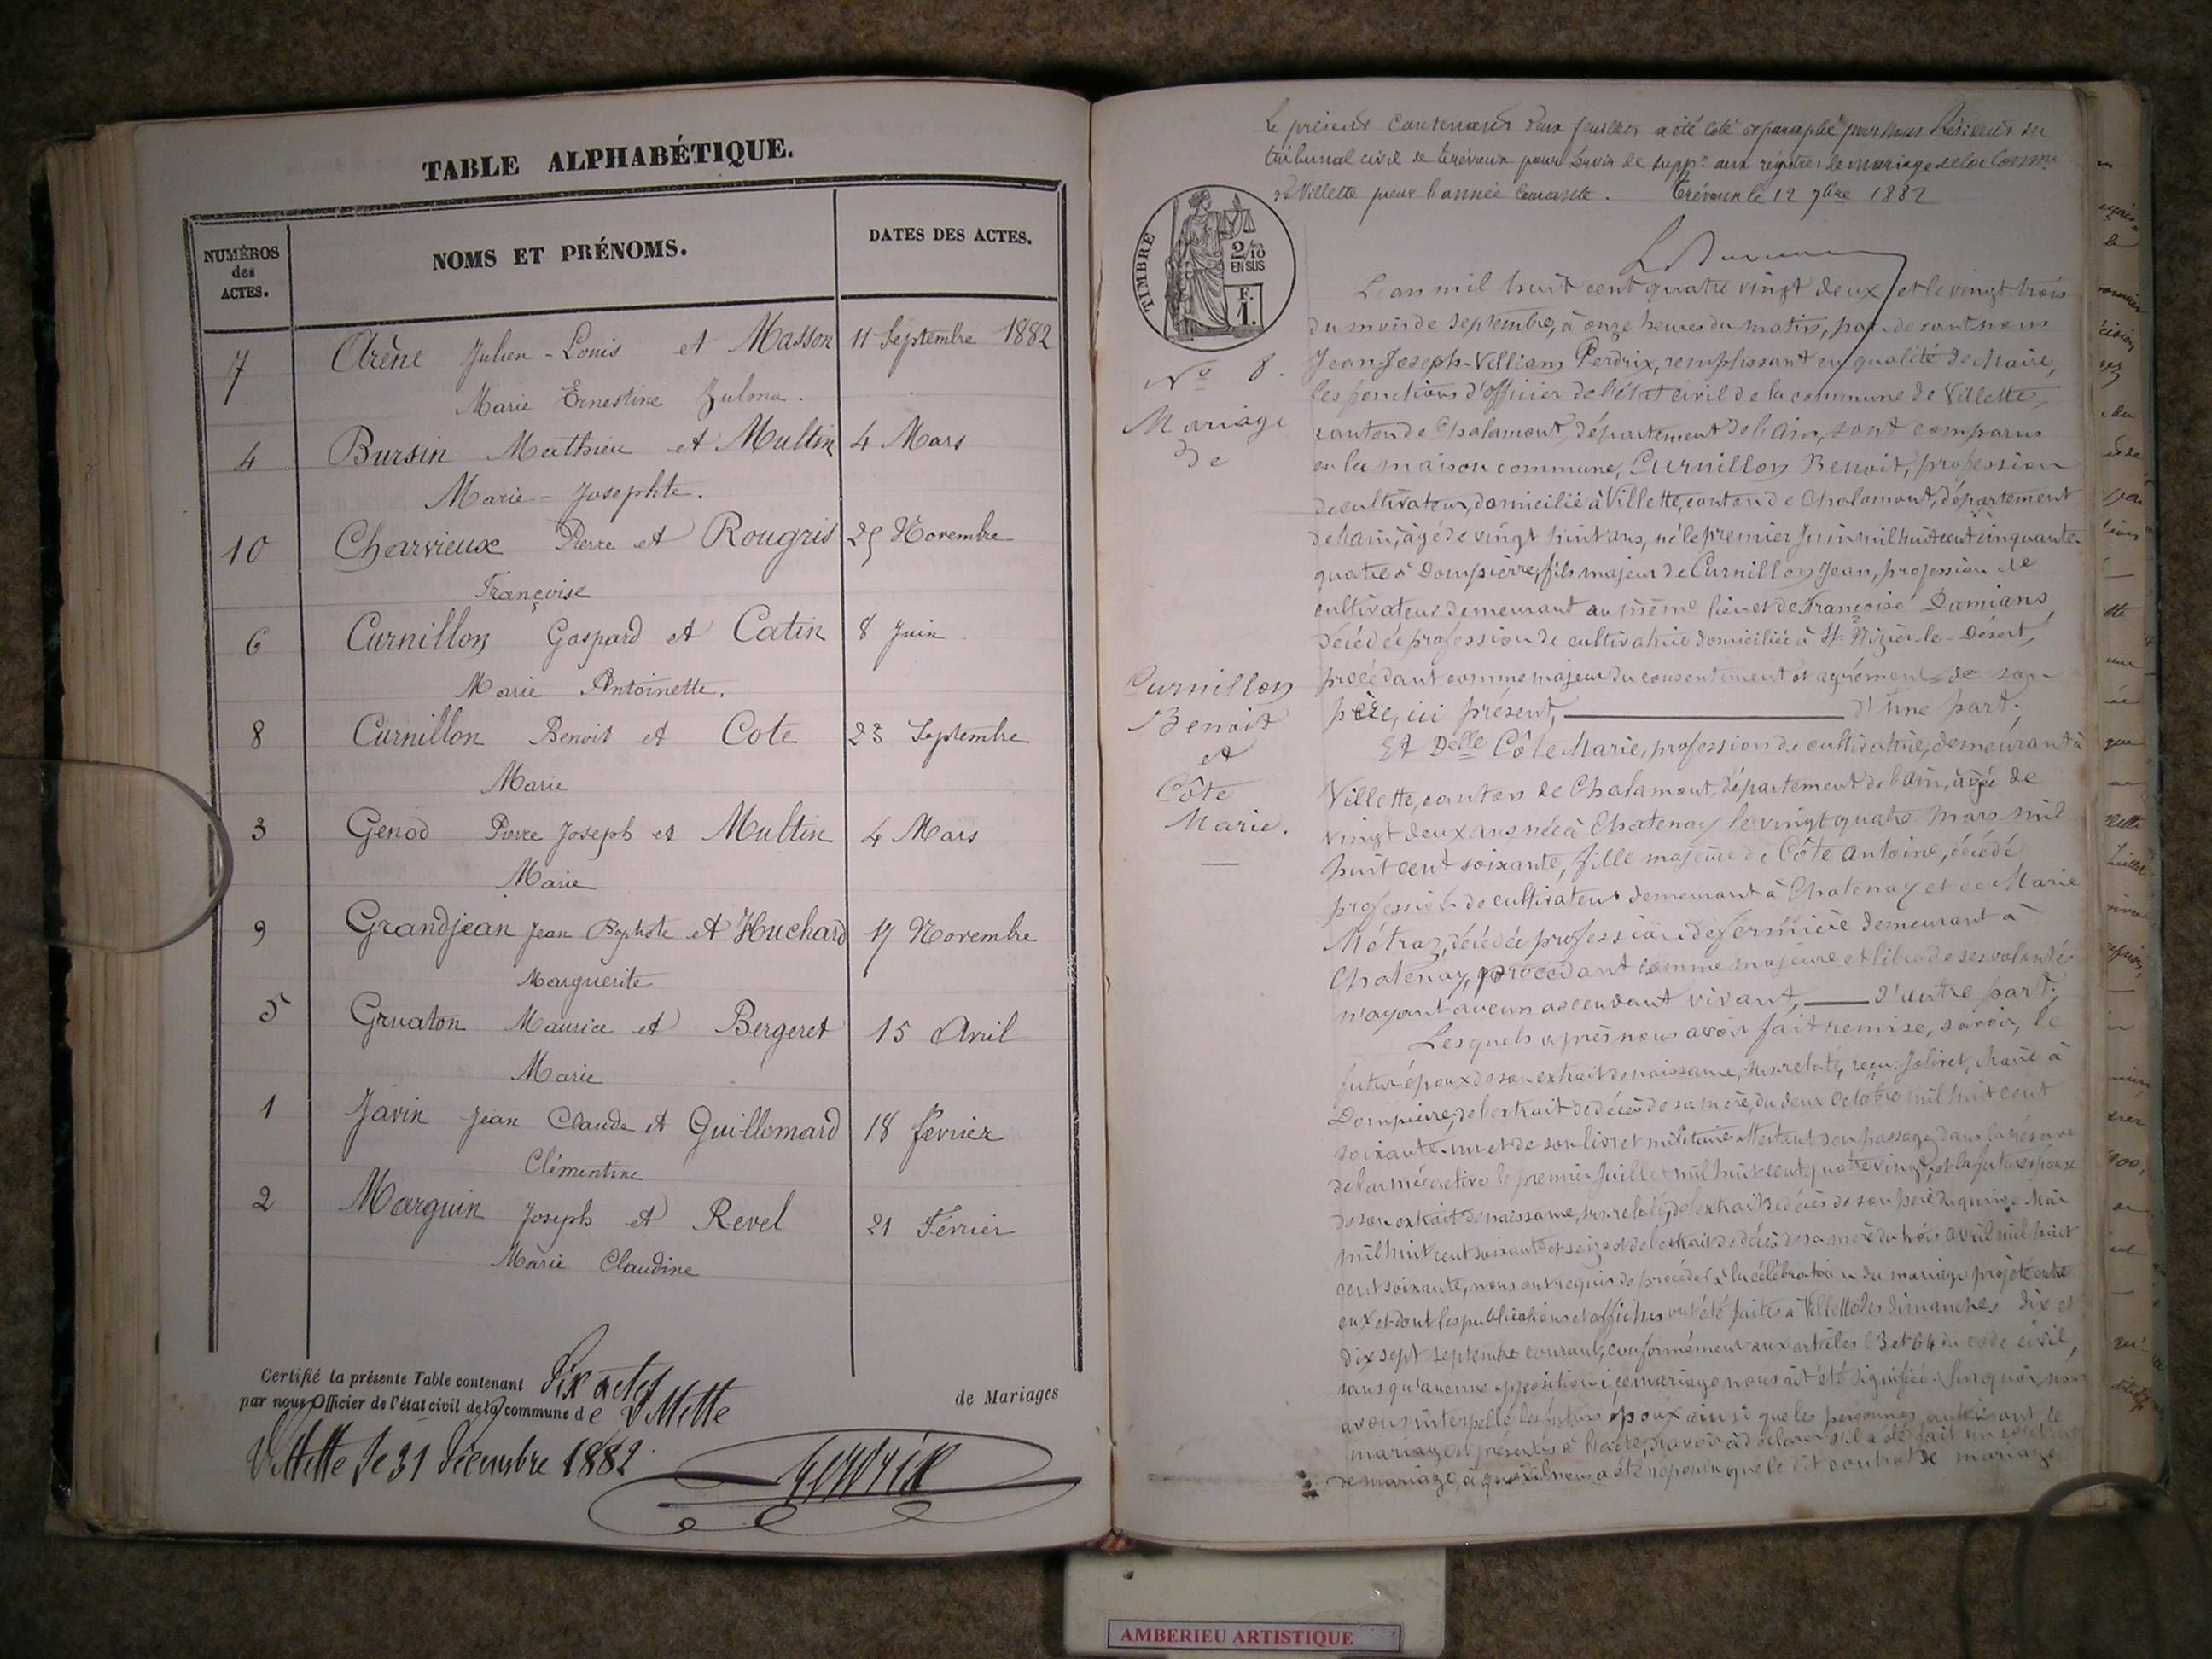 TABLE ALPHABÉTIQUE.
NUMÉROS
des
ACTES.
NOMS ET PRÉNOMS.
DATES DES ACTES.
7 Arène Julien-Louis et Masson 11 Septembre 1882
Marie Ernestine Zulma.
4 Bursin Mathieu et Multin 4 Mars
Marie-Josephte.
10 Charvieux Pierre et Rougris 25 Novembre
Françoise
6 Curnillon Gaspard et Catin 8 Juin
Marie Antoinette.
8 Curnillon Benoit et Cote 23 Septembre
Marie
3 Genod Pierre Joseph et Multin 4 Mars
Marie
9 Grandjean Jean Baptiste et Huchard 17 Novembre
Marguerite
5 Gruaton Maurice et Bergeret 15 Avril
Marie
1 Javin Jean Claude et Guillomard 18 février
Clémentine
2 Marguin Joseph et Revel 21 Février
Marie Claudine
Certifié la présente Table contenant Dix actes de Mariages
par nous Officier de l'état civil de la commune de Villette
Villette le 31 Décembre 1882
Perdrix
Le présent contenant deux feuilles a été coté et paraphé par nous Président du
tribunal civil de Trévoux pour servir de suppt aux registres de mariage de la Comm.
de Villette pour l'année courante. Trévoux le 12 7bre 1882
TIMBRE
2/10
EN SUS
F.
1.
L'an mil huit cent quatre vingt deux et le vingt trois
du mois de Septembre, à onze heures du matin, par devant nous
No 8.
Jean-Joseph-William Perdrix, remplissant en qualité de Maire,
les fonctions d'officier de l'état civil de la commune de Villette,
Mariage
canton de Chalamont, département de l'ain, sont comparus
de
en la maison commune, Curnillon Benoit, profession
de cultivateur, domicilié à Villette, canton de Chalamont, département
de l'ain, âgé de vingt huit ans, né le premier Juin mil huit cent cinquante-
quatre à Dompierre, fils majeur de Curnillon Jean, profession de
cultivateur demeurant au même lieu et de Françoise Damians,
décédée profession de cultivatrice domiciliée à St Nizier-le-Désert,
Curnillon
procédant comme majeur du consentement et agrément de son
Benoit
père, ici présent, d'une part;
et
Et Delle Côte Marie, profession de cultivatrice, demeurant à
Côte
Villette, canton de Chalamont, département de l'ain, âgée de
Marie.
vingt deux ans, née à Chatenay le vingt quatre Mars mil
huit cent soixante, fille majeure de Côte Antoine, décédé
profession de cultivateur demeurant à Chatenay et de Marie
Métraz, décédée profession de fermière demeurant à
Chatenay, procédant comme majeure et libre de ses volontés
n'ayant aucun ascendant vivant, d'autre part;
Lesquels après nous avoir fait remise, savoir, le
futur époux de son extrait de naissance, susrelaté, reçu: Jolivet, Maire à
Dompierre, de l'extrait de décès de sa mère, du deux Octobre mil huit cent
soixante-un et de son livret militaire attestant son passage dans la réserve
de l'armée active le premier Juillet mil huit cent quatre vingt, et la future épouse
de son extrait de naissance, susrelaté, de l'extrait de décès de son père du quinze Mai
mil huit cent soixante et seize et de l'extrait de décès de sa mère du trois avril mil huit
cent soixante, nous ont requis de procéder à la célébration du mariage projeté entre
eux et dont les publications et affiches ont été faites à Villette les dimanches dix et
dix sept Septembre courant, conformément aux articles 63 et 64 du code civil,
sans qu'aucune opposition à ce mariage nous ait été signifiée. Sur quoi, nous
avons interpellé les futurs époux ainsi que les personnes autorisant le
mariage et présentes à l'acte, d'avoir à déclarer s'il a été fait un contrat
de mariage, à quoi il nous a été répondu que le dit contrat de mariage
AMBERIEU ARTISTIQUE